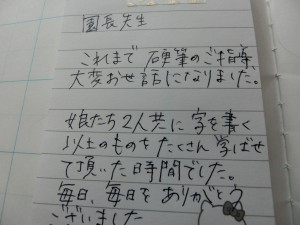 園長先生
これまで硬筆のご指導
大変お世話になりました。
娘たち2人共に字を書く
以上のものをたくさん学ばせ
て頂いた時間でした。
毎日、毎日をありがとう
ございました